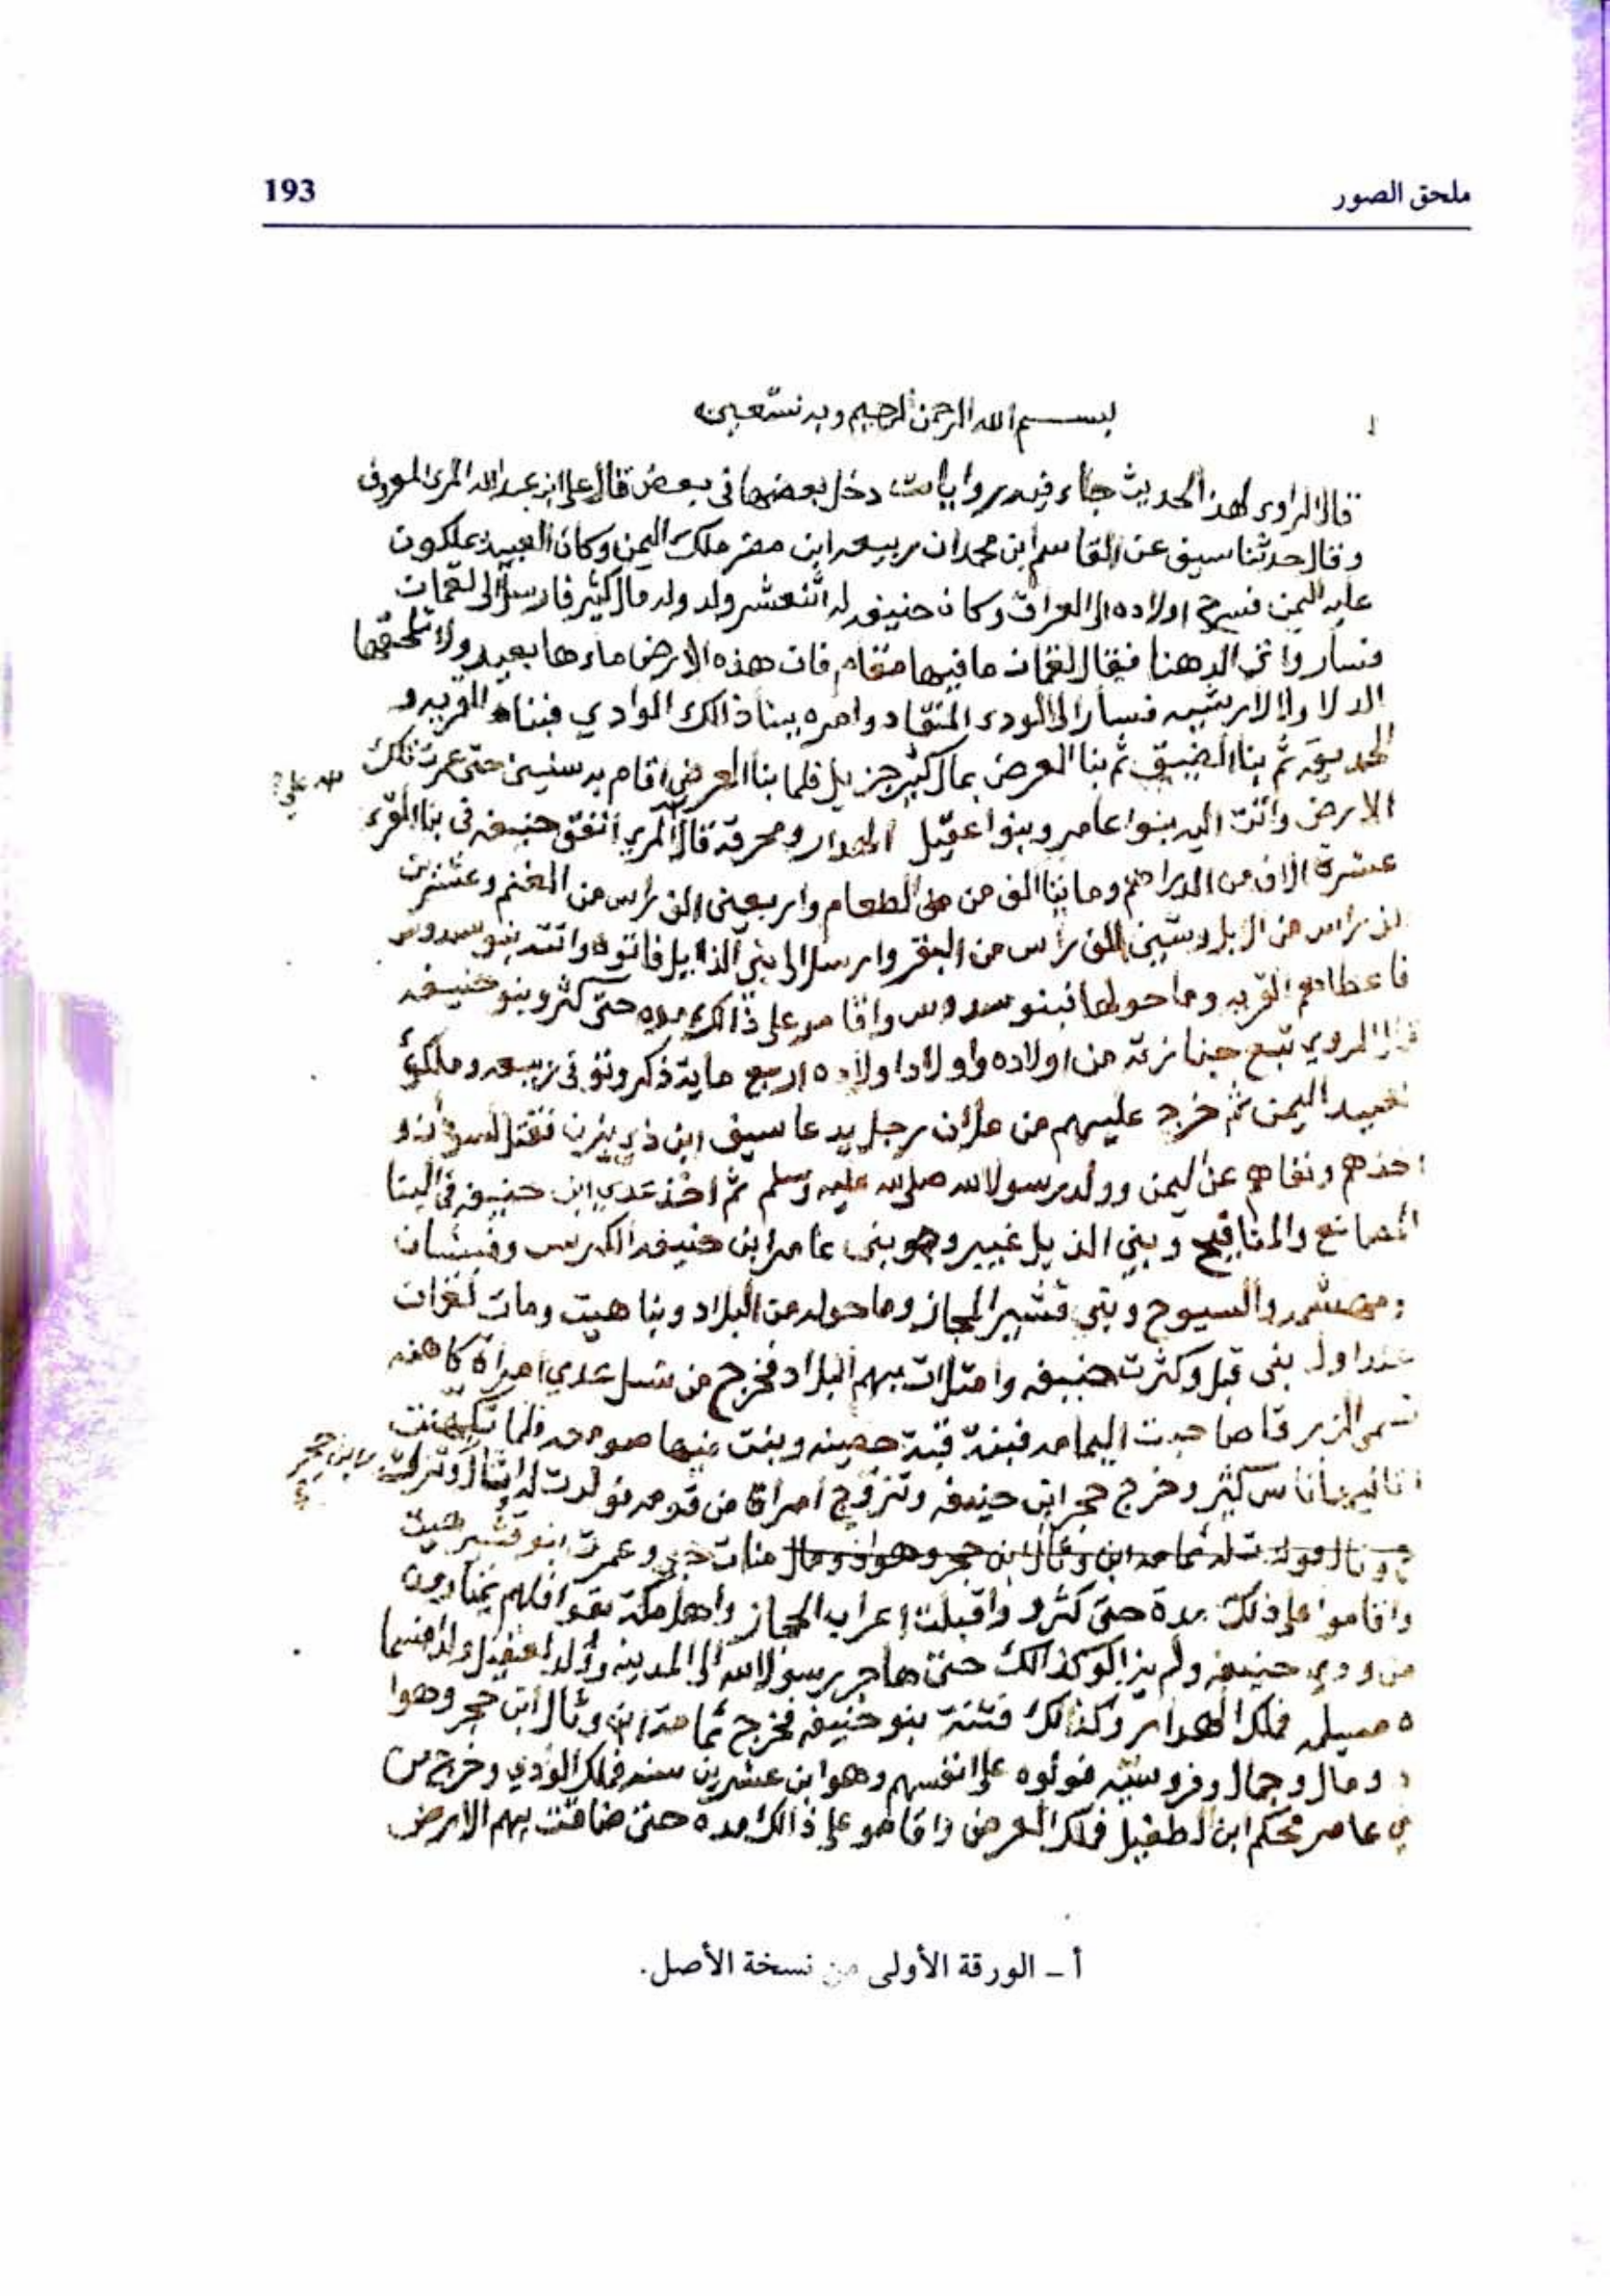 ملحق الصور
193
بسم الله الرحمن الرحيم وبه نستعين
قال الراوي لهذا الحديث جاء فيه روايات دخل بعضها في بعض قال علي ابن عبد الله المري المعروف
وقال حدثنا سيف عن القاسم ابن محمد ان ربيعه ابن مضر ملك اليمن وكان العبيد يملكون
عليه اليمن فسرح اولاده الى العراق وكان حنيفه له اثنعشر ولد وله مال كثير فارسل الى لقمان
فساروا في الدهنا فقال لقمان ما فيها مقام فان هذه الارض ماءها بعيد ولا تلحقها
الدلا ولا الارشيه فسارا الى الودي المنقاد وامره ببنا ذالك الوادي فبناه القريه و
الحديقه ثم بنا الضيق ثم بنا العرض بمال كثير جزيل فلما بنا العرض اقام به سنين حتى عمرت تلك
الارض واتت اليه بنوا عامر وبنوا عقيل الهدار ومحرقة قال المري انفق حنيفه في بنا القرء
عشرة الاف من الدراهم وما يتا الف من من الطعام واربعين الف راس من الغنم وعشرين
الف راس من الابل وستين الف راس من البقر وارسل الى بني الذابيل فاتوه واتته بنو سدوس
فاعطاهم القريه وما حولها فبنو سدوس واقامو على ذالك مده حتى كثرو بنو حنيفه
قال المروي تبع جنازته من اولاده واولاد اولاده اربع ماية ذكر وتوفي ربيعه وملكو
عبيد اليمن ثم خرج عليهم من رجل يدعا سيف ابن ذي يزن فقتل السودان و
اخذهم ونفاهم عن اليمن وولد رسول الله صلى الله عليه وسلم ثم اخذ عدي ابن حنيفه في البنا
المصانع والمنافيح وبني الذيل غبير وهو بني عامر ابن حنيفه الكرس وفيشان
والسيوح وبني قشير المجاز وما حوله من البلاد وبنا هيت ومات لقمان
عند اول بني قبل وكثرت حنيفه وامتلات بهم البلاد فخرج من نسل عدي امراة كاهنه
تسمى الزرقا صاحبت اليمامه فبنة قبة حصينه وبنت فيها صومعه فلما تكهنت
اتاليها اناس كثير وخرج حجر ابن حنيفه وتزوج امراة من قومه فولدت له اثال وترك
وثال فولدت له ثمامه ابن وثال ابن حجر وهو اذو مال فمات حجر وعمرت ابنو قشير هيت
واقاموا على ذلك مدة حتى كثرو واقبلت اعراب الحجاز واهل مكة بقوافلهم يمتارون
من ودي حنيفه ولم يزالو كذالك حتى هاجر رسول الله الى المدينه
ه مسيلمه فملك الهدار وكذالك فتنة بنو حنيفه فخرج ثمامة ابن وثال ابن حجر وهوا
ذو مال وجمال وفروسيه فولوه على انفسهم وهو ابن عشرين سنه فملك الودي وخرج من
بني عامر محكم ابن الطفيل فملك العرض واقامو على ذالك مده حتى ضاقت بهم الارض
أ ـ الورقة الأولى من نسخة الأصل.